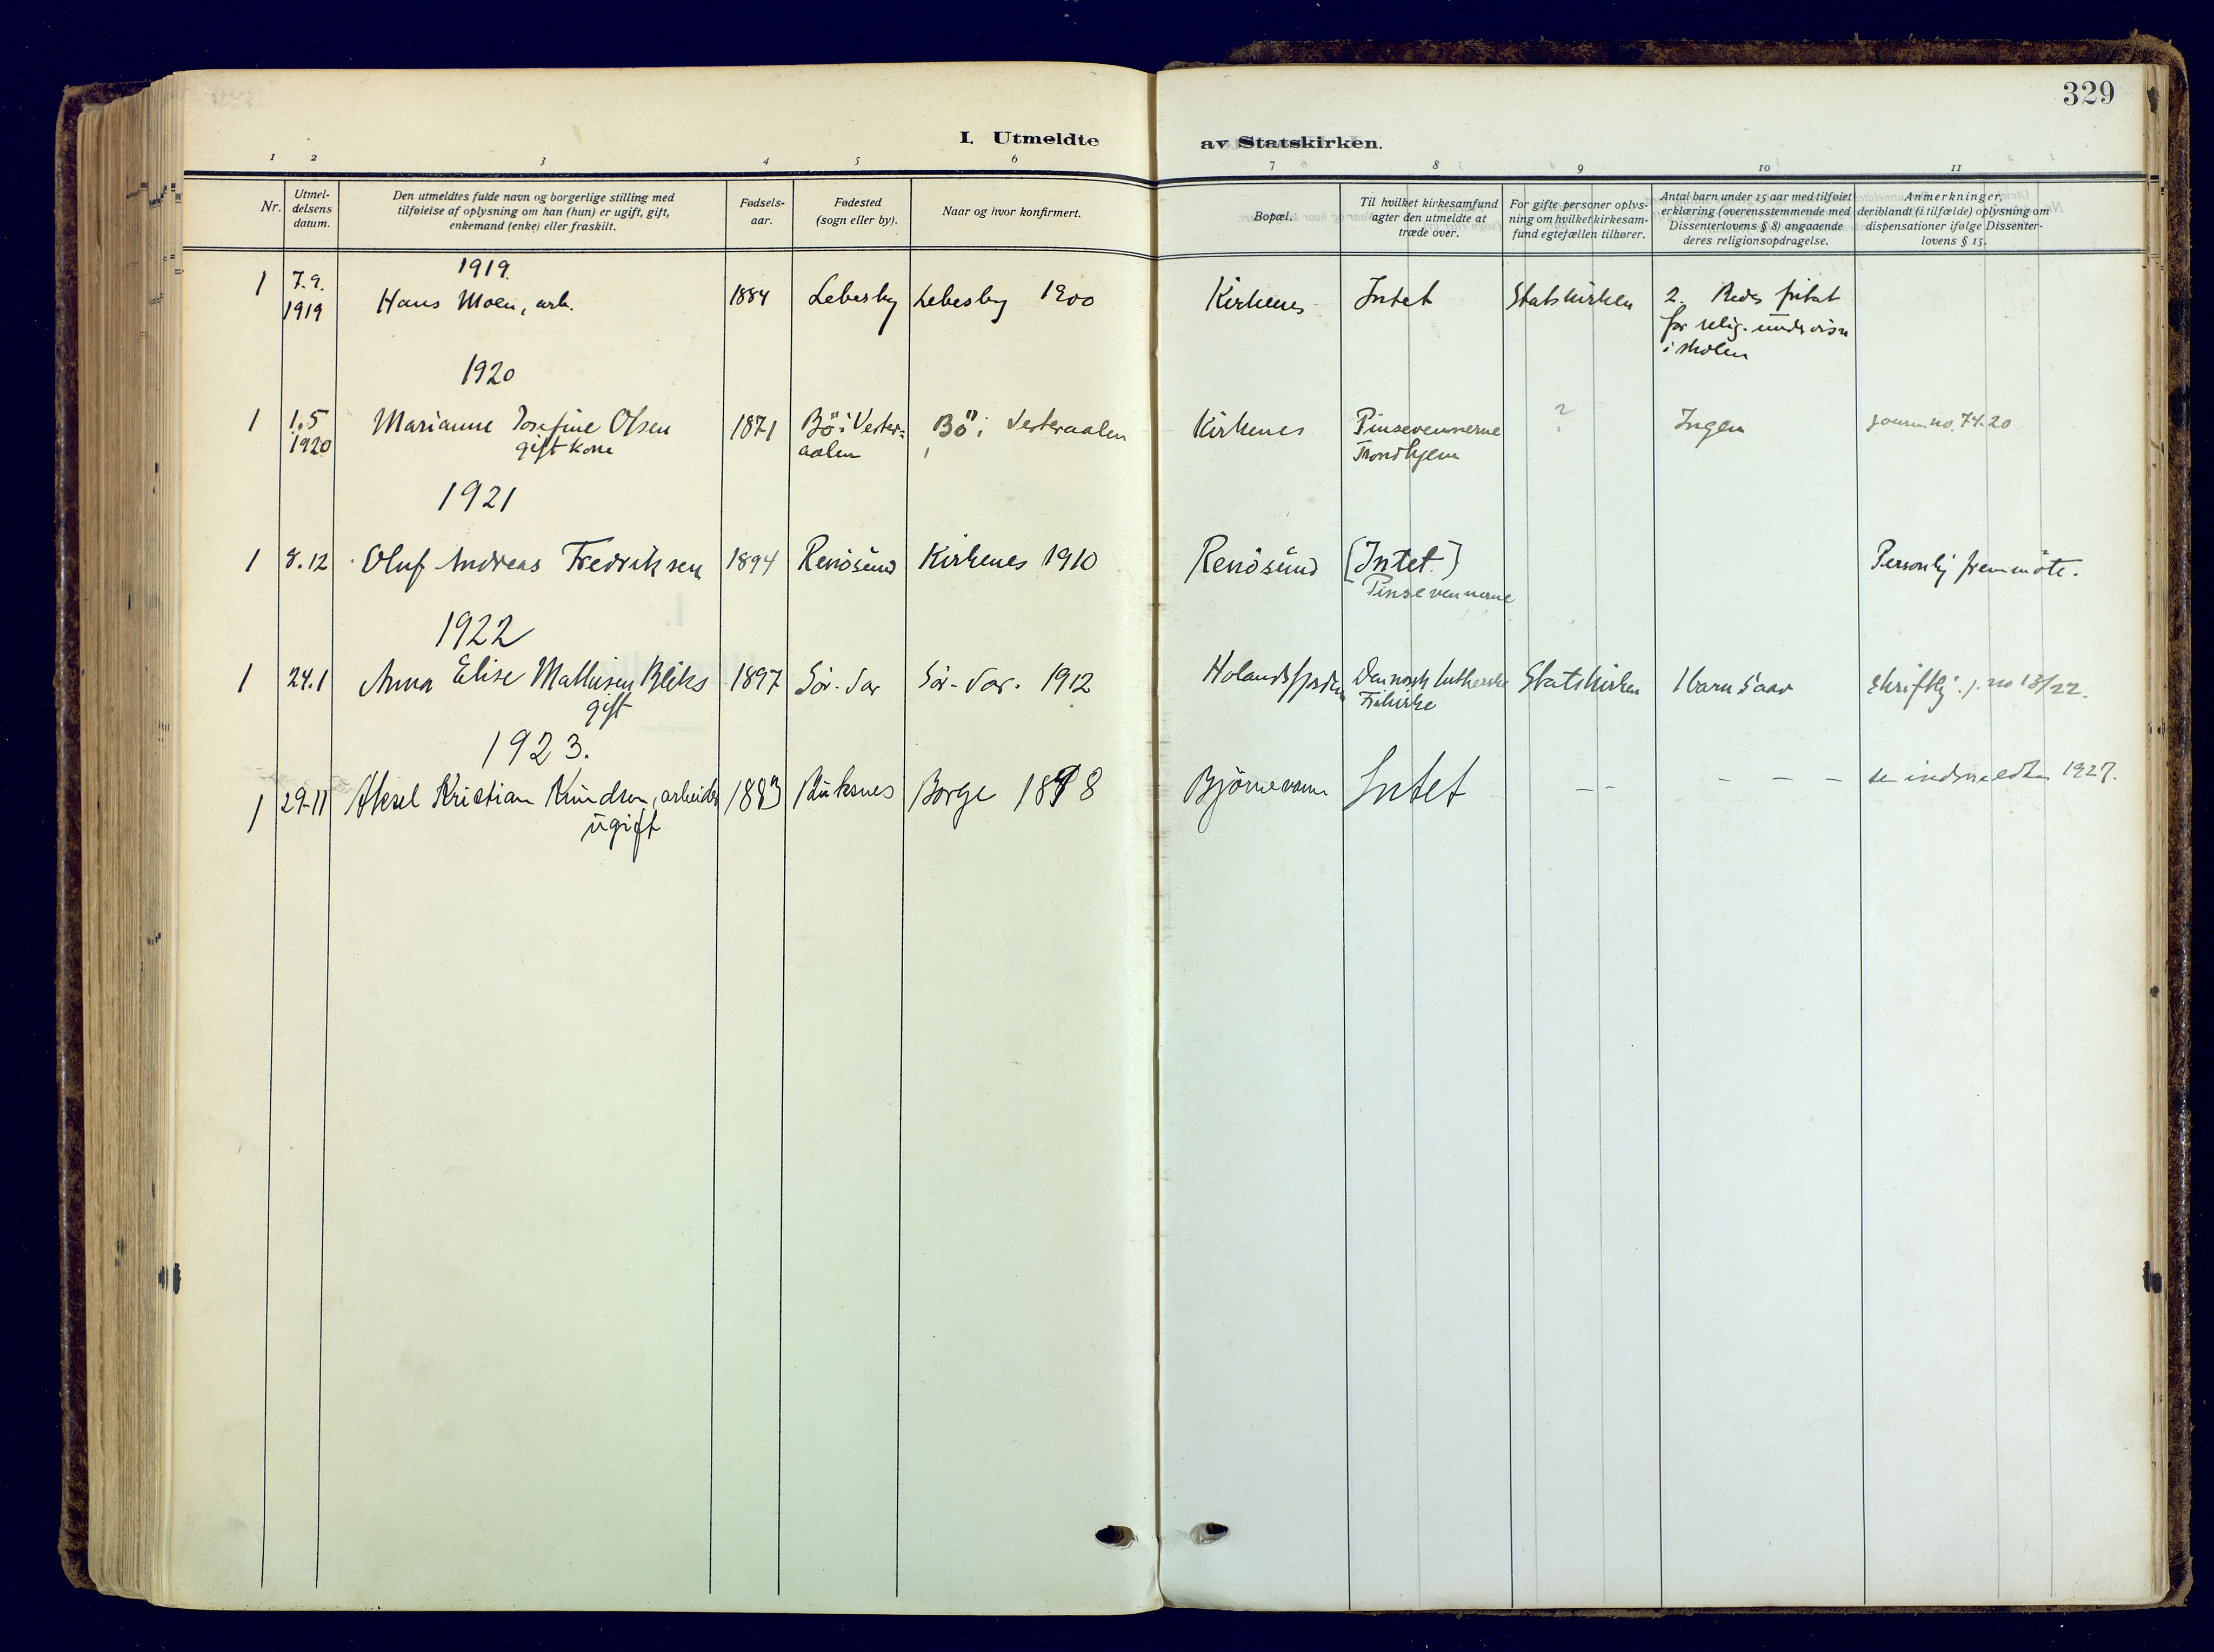 329
I. Utmeldte av Statskirken.
1 2 3 4 5 6 7 8 9 10 11
Nr.
Utmel-
delsens
datum.
Den utmeldtes fulde navn og borgerlige stilling med
tilføielse af oplysning om han (hun) er ugift, gift,
enkemand (enke) eller fraskilt.
Fødsels-
aar.
Fødested
(sogn eller by).
Naar og hvor konfirmert.
Bopæl.
Til hvilket kirkesamfund
agter den utmeldte at
træde over.
For gifte personer oplys-
ning om hvilket kirkesam-
fund egtefællen tilhører.
Antal barn under 15 aar med tilføiet
erklæring (overensstemmende med
Dissenterlovens § 8) angaaende
deres religionsopdragelse.
Anmerkninger,
deriblandt (i tilfælde) oplysning om
dispensationer ifølge Dissenter-
lovens § 15.
1919.
1 7.9. 1919 Hans Moen, arb. 1884 Lebesby Lebesby 1900 Kirkenes Intet Statskirken 2. Bedes fritat
for relig. undervisn
i skolen
1920
1 1.5 1920 Marianne Josefine Olsen 1871 Bö i Vester= Bö i Vesteraalen Kirkenes Pinsevennerne ? Ingen journ. no. 74.20
gift kone aalen Trondhjem
1921
1 8.12 Oluf Andreas Fredriksen 1894 Renösund Kirkenes 1910 Renösund [Intet] Personlig fremmöte.
Pinsevennerne
1922
1 24.1 Anna Elise Mathisen Bliks 1897 Sör-Var Sör-Var. 1912 Holandsfjorden Den norsk lutherske Statskirken 1 barn 5 aar skriftlig j. no 13/22.
gift Frikirke
1923.
1 29-11 Aksel Kristian Knudsen, arbeider 1883 Buksnes Borge 1898 Björnevann Intet - - - - - se indmeldte 1927.
ugift